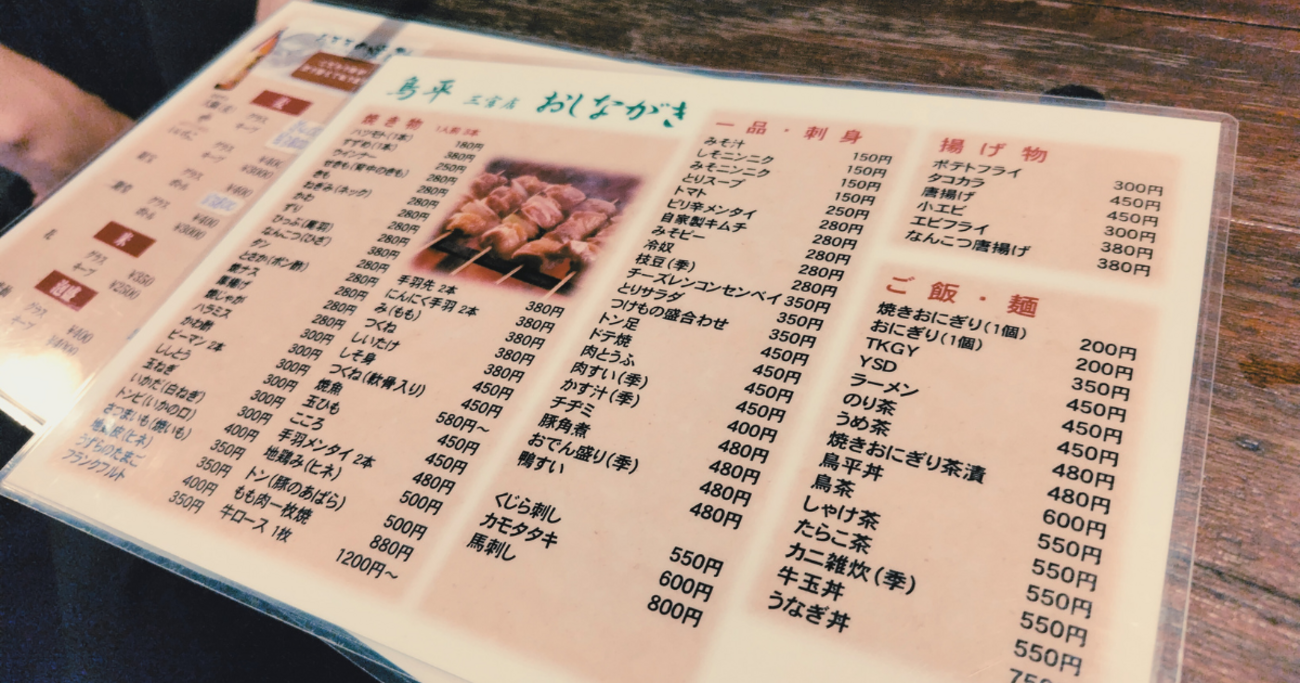 鳥平 三宮店 おしながき
焼き物 1人前 3本
ハツモト(1本) 180円
すずめ(1本) 380円
ウインナー 250円
せきも(背中のきも) 280円
きも 280円
かわ 280円
ねぎみ(ネック) 280円
ずり 280円
ひっぷ(尾羽) 280円
なんこつ(ひざ) 280円
タン 380円
とさか(ポン酢) 280円
焼ナス 280円
厚揚げ 280円
焼しゃが 280円
ハラミス 300円
かわ酢 300円
ピーマン 2本 300円
ししとう 300円
玉ねぎ 300円
いかだ(白ねぎ) 300円
トンビ(いかの口) 400円
さつまいも(焼いも) 350円
地鶏皮(ヒネ) 350円
うずらのたまご 400円
フランクフルト 350円
手羽先 2本 380円
にんにく手羽 2本 380円
み(もも) 380円
つくね 380円
しいたけ 380円
しそ身 450円
つくね(軟骨入り) 450円
焼魚 580円～
玉ひも 450円
こころ 450円
手羽メンタイ 2本 480円
地鶏み(ヒネ) 500円
トン(豚のあばら) 500円
もも肉一枚焼 880円
牛ロース 1枚 1200円～
一品・刺身
みそ汁 150円
しそニンニク 150円
みそニンニク 150円
とりスープ 150円
トマト 250円
ピリ辛メンタイ 280円
自家製キムチ 280円
みそピー 280円
冷奴 280円
枝豆(季) 350円
チーズレンコンセンベイ 350円
とりサラダ 350円
つけもの盛合わせ 450円
トン足 450円
ドテ焼 450円
肉どうふ 450円
肉すい(季) 400円
かす汁(季) 480円
チヂミ 480円
豚角煮 480円
おでん盛り(季) 480円
鴨すい
くじら刺し 550円
カモタタキ 600円
馬刺し 800円
揚げ物
ポテトフライ 300円
タコカラ 450円
唐揚げ 450円
小エビ 300円
エビフライ 380円
なんこつ唐揚げ 380円
ご飯・麺
焼きおにぎり(1個) 200円
おにぎり(1個) 200円
TKGY 350円
YSD 450円
ラーメン 450円
のり茶 450円
うめ茶 480円
焼きおにぎり茶漬 480円
鳥平丼 600円
鳥茶 550円
しゃけ茶 550円
たらこ茶 550円
カニ雑炊(季) 550円
牛玉丼 550円
うなぎ丼